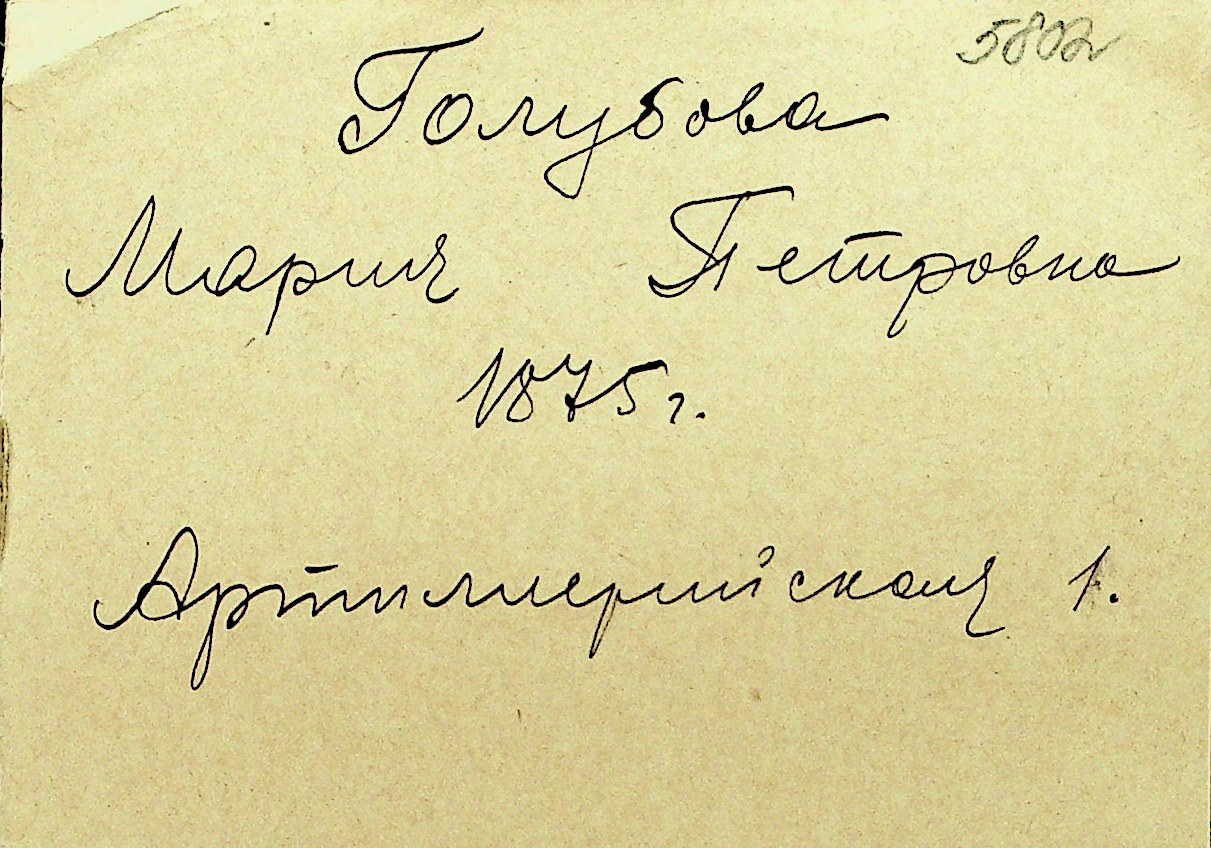 5802
Голубова
Мария Петровна
1875 г.
Артиллерийская 1.